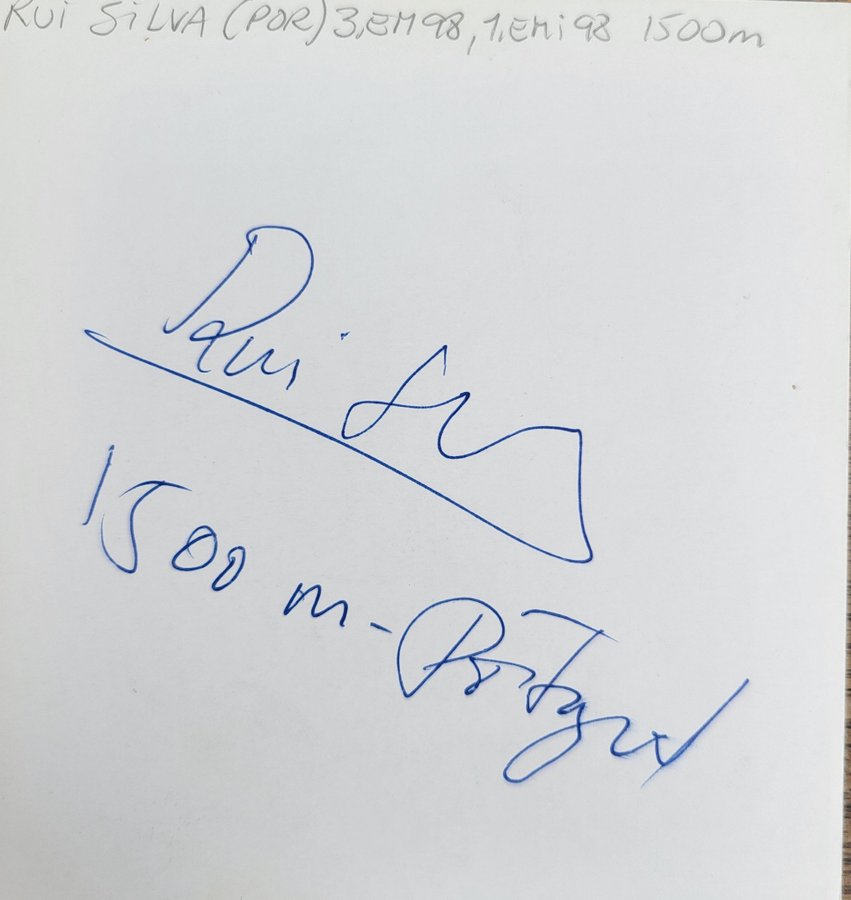 RUi SiLVA (POR) 3.EM98, 1.EMi98 1500m
Rui Silva
1500 m - Portugal